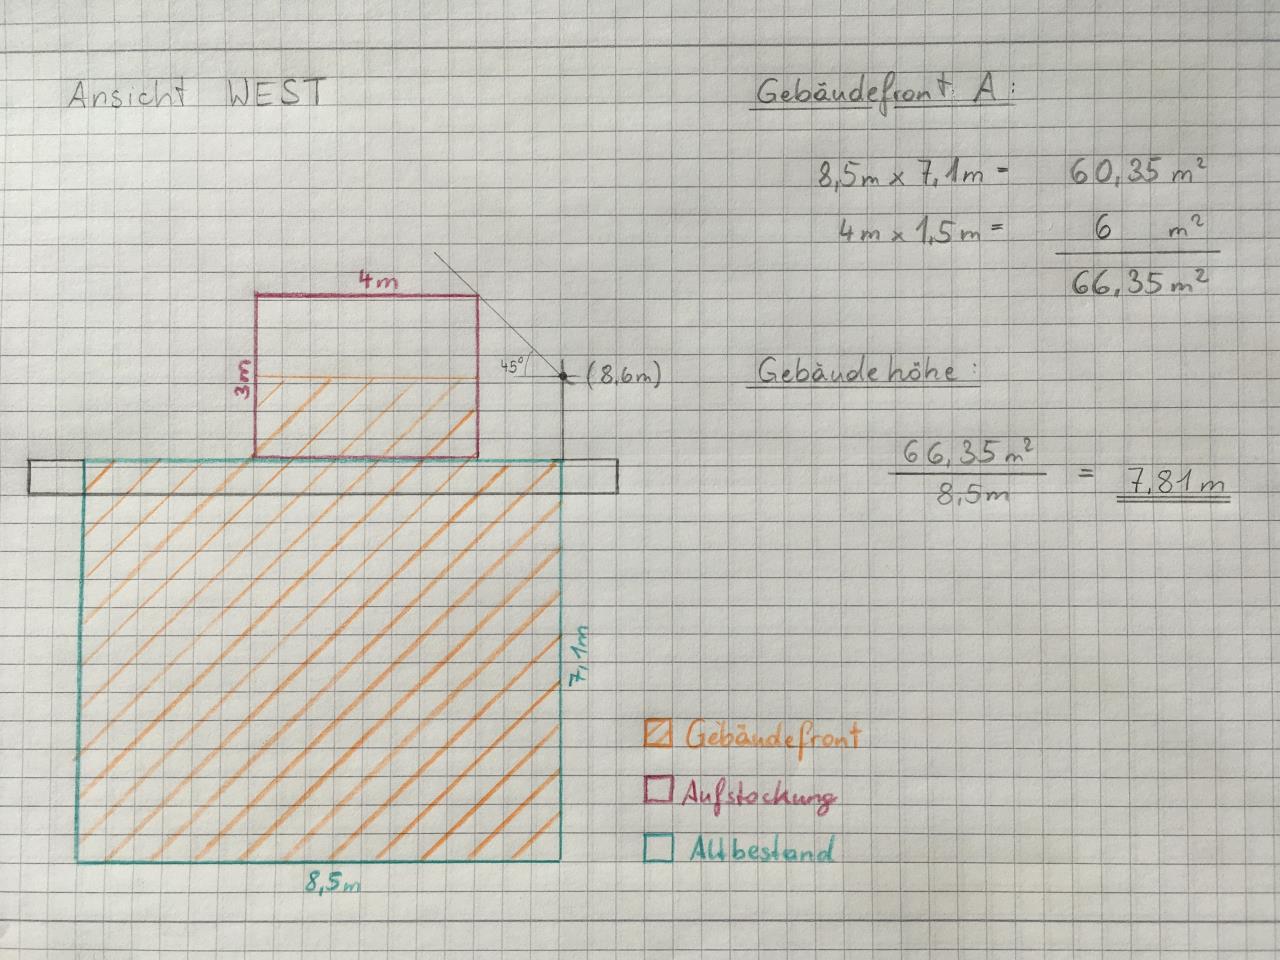 Ansicht WEST
Gebäudefront A:
8,5m x 7,1m = 60,35 m²
4m x 1,5m = 6 m²
66,35 m²
4m
3m
45°
(8,6m)
Gebäudehöhe:
66,35 m²
8,5m
= 7,81m
7,1m
8,5m
Gebäudefront
Aufstockung
Altbestand